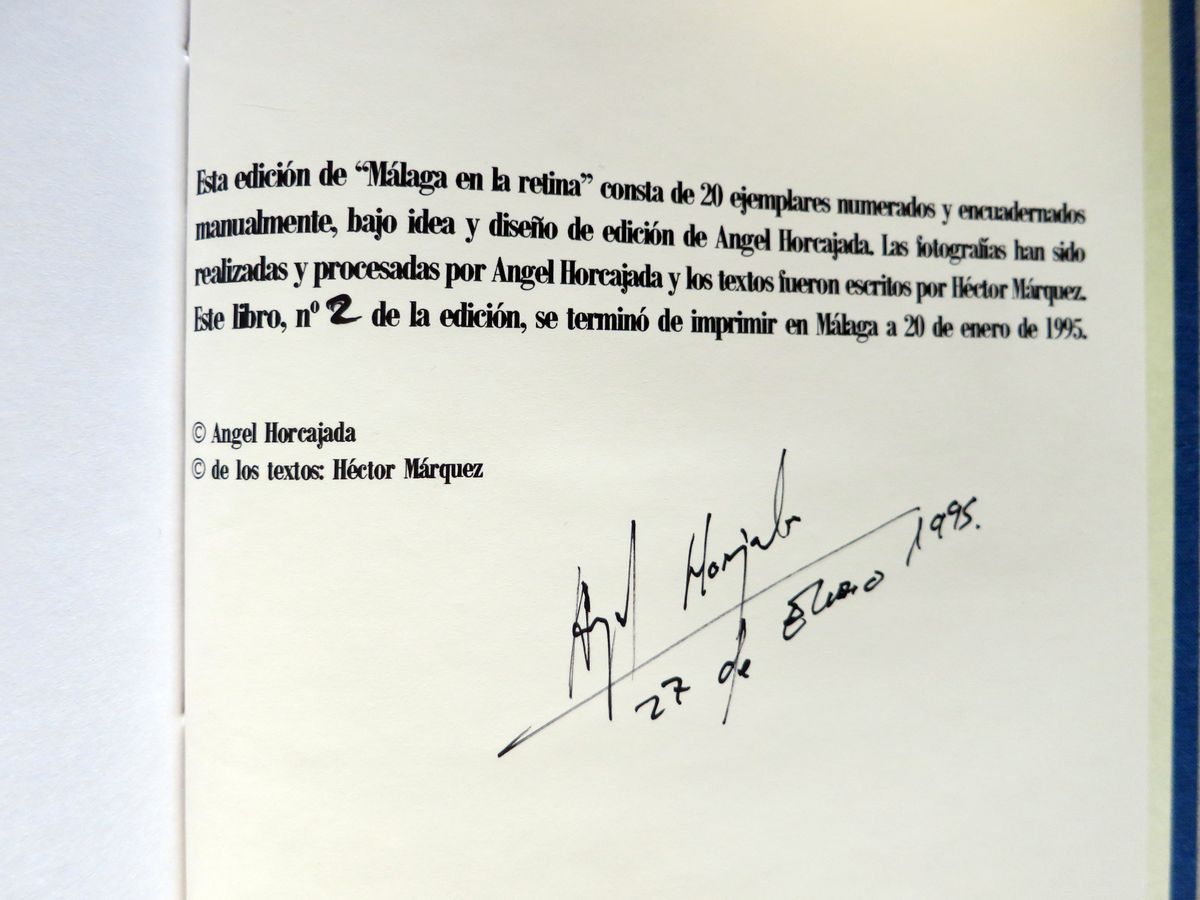 Esta edición de “Málaga en la retina” consta de 20 ejemplares numerados y encuadernados
manualmente, bajo idea y diseño de edición de Angel Horcajada. Las fotografías han sido
realizadas y procesadas por Angel Horcajada y los textos fueron escritos por Héctor Márquez.
Este libro, nº 2 de la edición, se terminó de imprimir en Málaga a 20 de enero de 1995.
© Angel Horcajada
© de los textos: Héctor Márquez
Angel Horcajada
27 de Enero 1995.